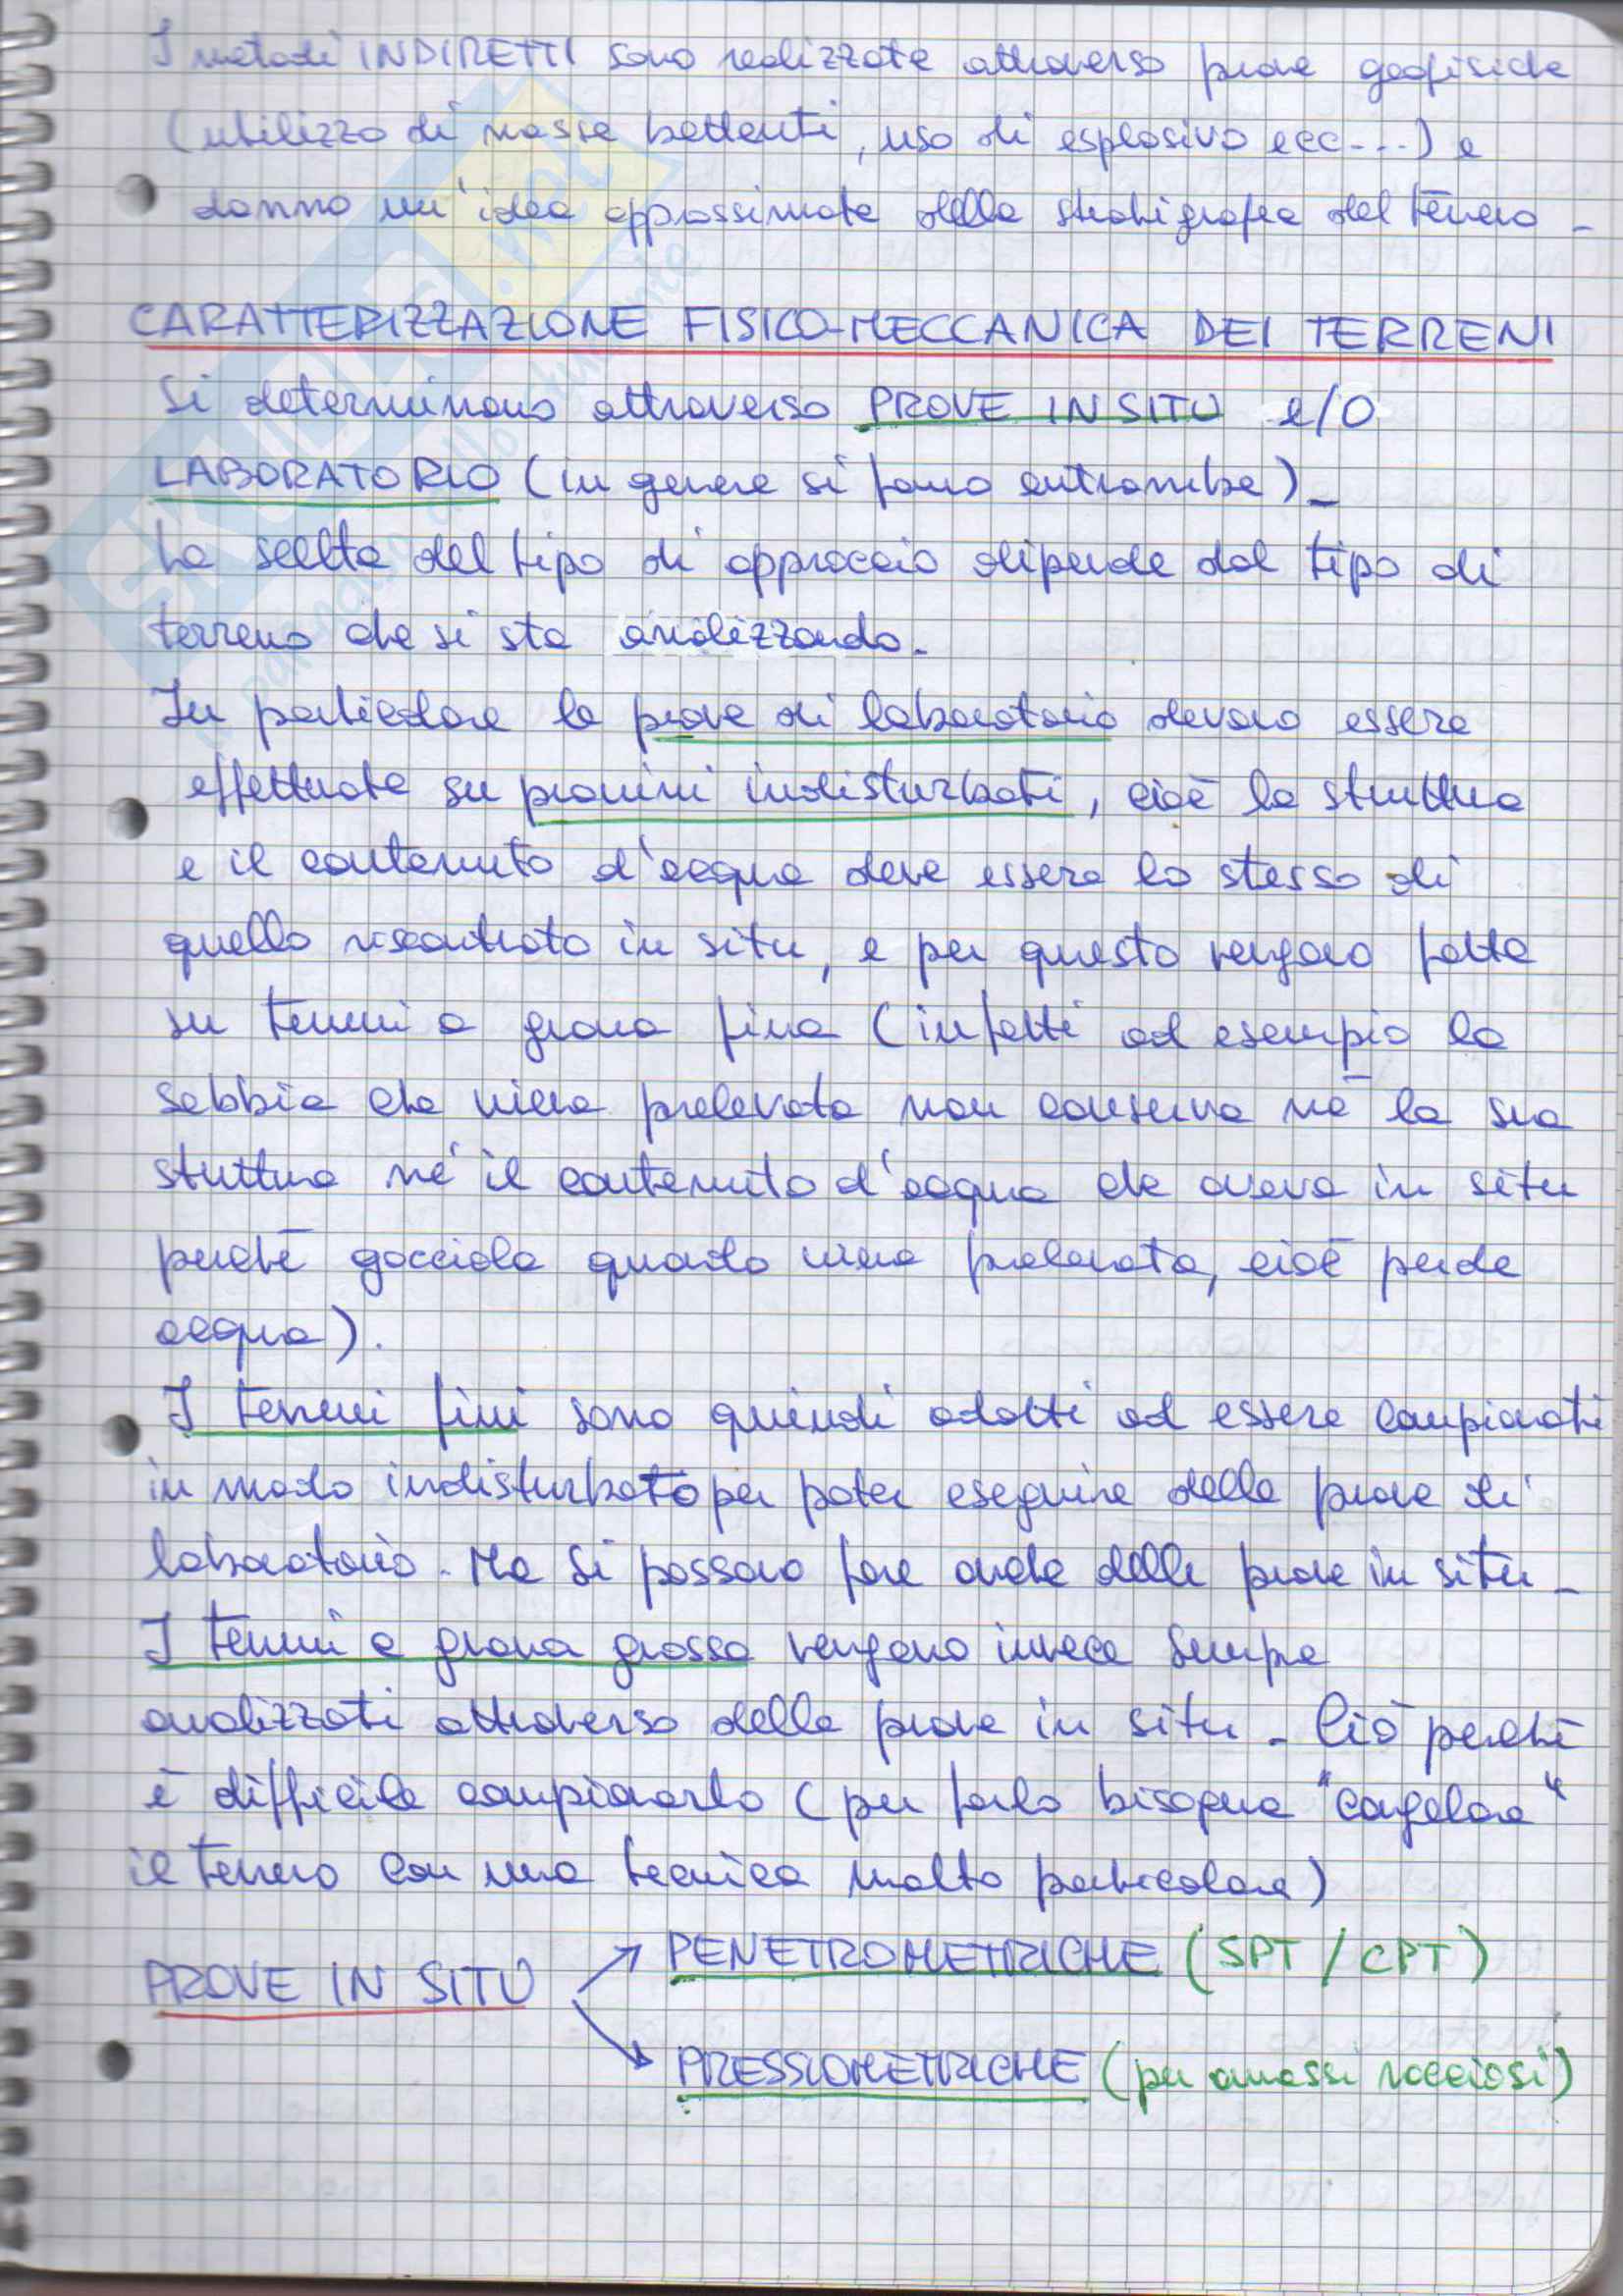 I metodi INDIRETTI sono realizzate attraverso prove geofisiche
(utilizzo di masse battenti, uso di esplosivo ecc...) e
danno un'idea approssimata della stratigrafia del terreno -
CARATTERIZZAZIONE FISICO-MECCANICA DEI TERRENI
Si determinano attraverso PROVE IN SITU e/o
LABORATORIO (in genere si fanno entrambe) -
La scelta del tipo di approccio dipende dal tipo di
terreno che si sta analizzando.
In particolare le prove di laboratorio devono essere
effettuate su provini indisturbati, cioè la struttura
e il contenuto d'acqua deve essere lo stesso di
quello riscontrato in situ, e per questo vengono fatte
su terreni a grana fina (infatti ad esempio la
sabbia che viene prelevata non conserva nè la sua
struttura né il contenuto d'acqua che aveva in situ
perchè gocciola quando viene prelevata, cioè perde
acqua).
I terreni fini sono quindi adatti ad essere campionati
in modo indisturbato per poter eseguire delle prove di
laboratorio. Ma si possono fare anche delle prove in situ -
I terreni a grana grossa vengono invece sempre
analizzati attraverso delle prove in situ - Ciò perchè
è difficile campionarlo (per farlo bisogna "congelare"
il terreno con una tecnica molto particolare)
PROVE IN SITU
PENETROMETRICHE (SPT / CPT)
PRESSIOMETRICHE (per amassi rocciosi)
SKUOLA.net